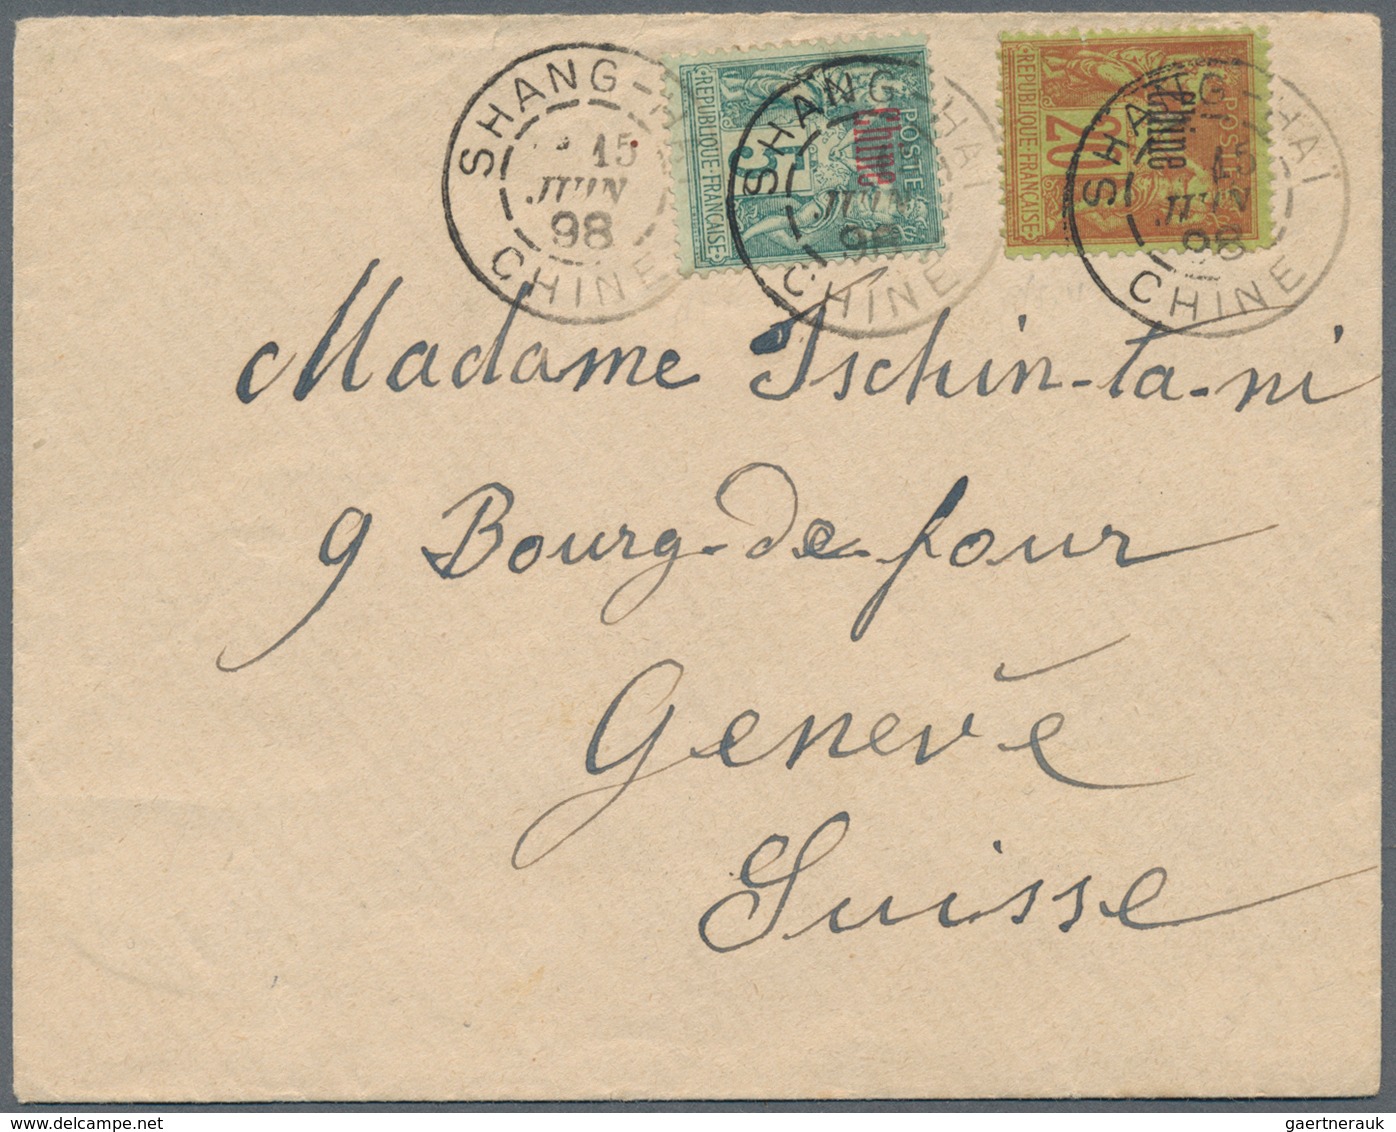 SHANG-HAÏ
15
JUIN
98
CHINE
REPUBLIQUE FRANÇAISE
5
POSTE
Chine
SHANG-HAÏ
15
JUIN
98
CHINE
REPUBLIQUE FRANÇAISE
20
POSTE
Chine
SHANG-HAÏ
15
JUIN
98
CHINE
Madame Tschin-ta-ni
9 Bourg-de-four
Genève
Suisse
gaertnerauk